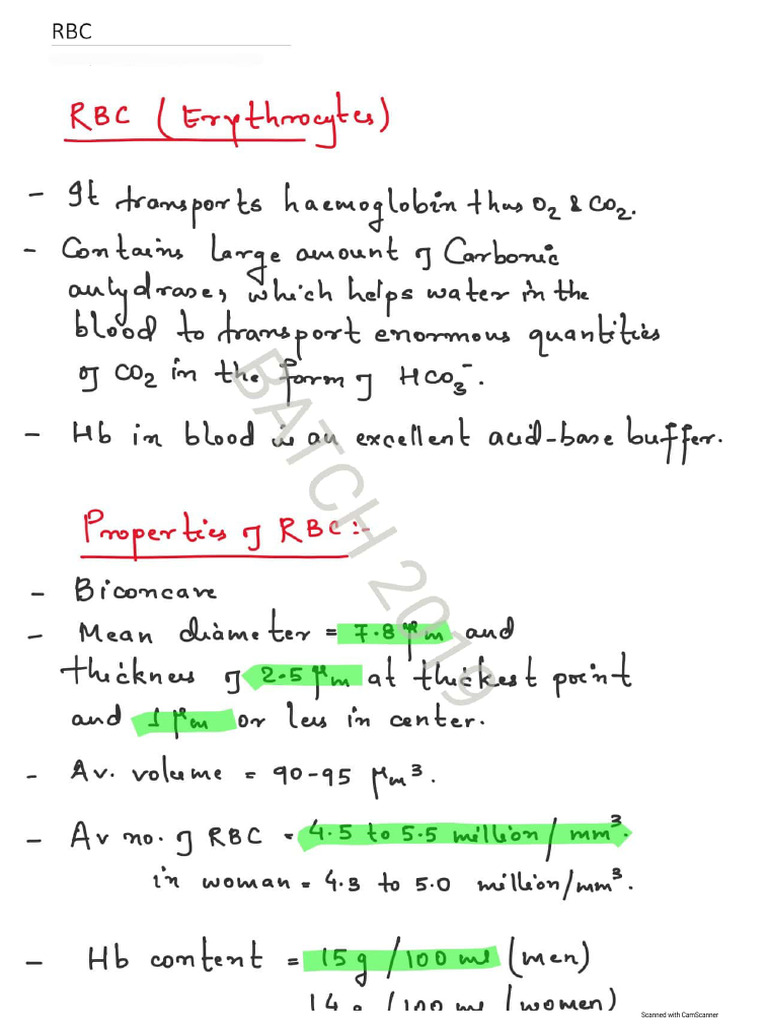 RBC
RBC (Erythrocytes)
- It transports haemoglobin thus O₂ & CO₂.
- Contains large amount of Carbonic
anhydrase, which helps water in the
blood to transport enormous quantities
of CO₂ in the form of HCO₃⁻.
- Hb in blood is an excellent acid-base buffer.
Properties of RBC:-
- Biconcave
- Mean diameter = 7.8 μm and
thickness of 2.5 μm at thickest point
and 1 μm or less in center.
- Av. volume = 90-95 μm³.
- Av no. of RBC = 4.5 to 5.5 million/mm³.
in woman = 4.3 to 5.0 million/mm³.
- Hb content = 15 g/100 ml (men)
14 g/100 ml (women)
BATCH 2019
Scanned with CamScanner